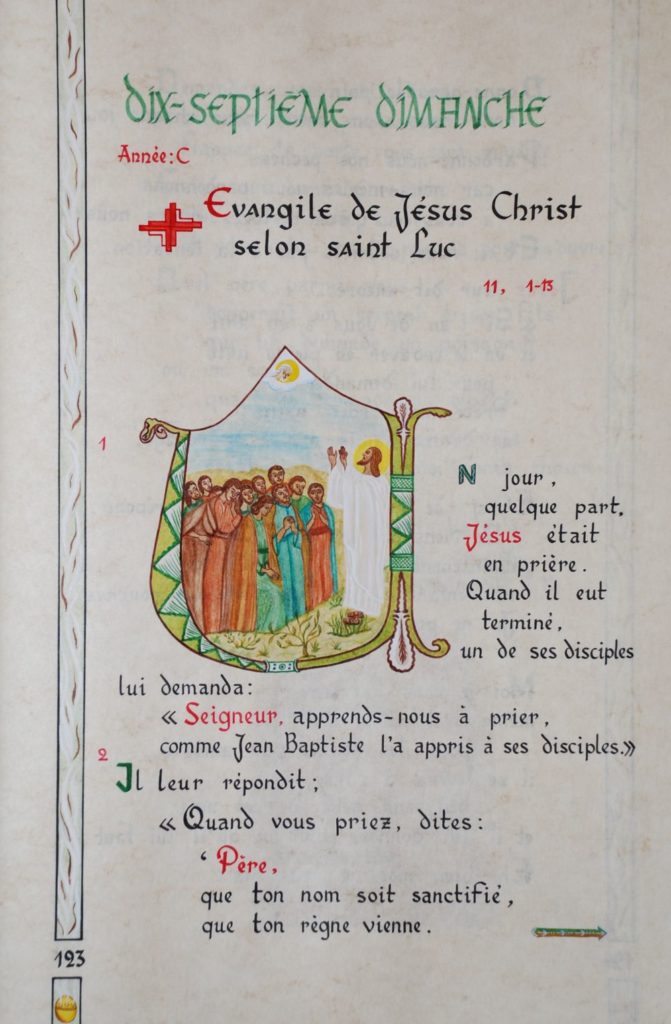 DIX-SEPTIÈME DIMANCHE
Année: C
Evangile de Jésus Christ
selon saint Luc
11, 1-13
1
UN jour,
quelque part,
Jésus était
en prière.
Quand il eut
terminé,
un de ses disciples
lui demanda:
« Seigneur, apprends-nous à prier,
comme Jean Baptiste l'a appris à ses disciples.»
2
Il leur répondit ;
« Quand vous priez, dites :
‘ Père,
que ton nom soit sanctifié,
que ton règne vienne.
123